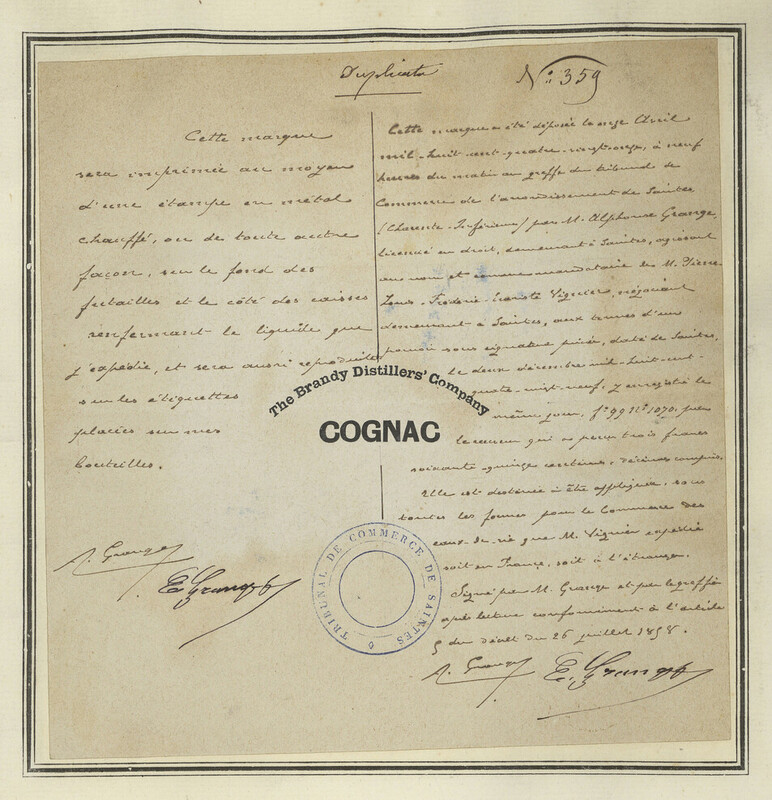 Duplicata
N° 359
Cette marque
sera imprimée au moyen
d'une étampe en métal
chauffé, ou de toute autre
façon, sur le fond des
futailles et le côté des caisses
renfermant le liquide que
j'expédie, et sera aussi reproduite
sur les étiquettes
placées sur mes
bouteilles.
A. Grange
Cette marque a été déposée le onze Avril
mil-huit-cent-quatre-vingt-onze, à neuf
heures du matin au greffe du tribunal de
Commerce de l'arrondissement de Saintes
(Charente-Inférieure) par M. Alphonse Grange,
licencié en droit, demeurant à Saintes, agissant
au nom et comme mandataire de M. Pierre
Louis-Frédéric Vignier, négociant
demeurant à Saintes, aux termes d'un
pouvoir sous signature privée, daté de Saintes,
le deux décembre mil-huit-cent-
quatre-vingt-neuf, y enregistré le
même jour, f° 99 N° 1070, par
le receveur qui a perçu trois francs
soixante-quinze centimes, décimes compris.
Elle est destinée à être appliquée, sous
toutes les formes pour le Commerce des
eaux-de-vie que M. Vignier expédie
soit en France, soit à l'étranger.
Signé par M. Grange et par le greffier
après lecture conformément à l'article
5 du décret du 26 juillet 1858.
A. Grange
The Brandy Distillers' Company
COGNAC
TRIBUNAL DE COMMERCE DE SAINTES